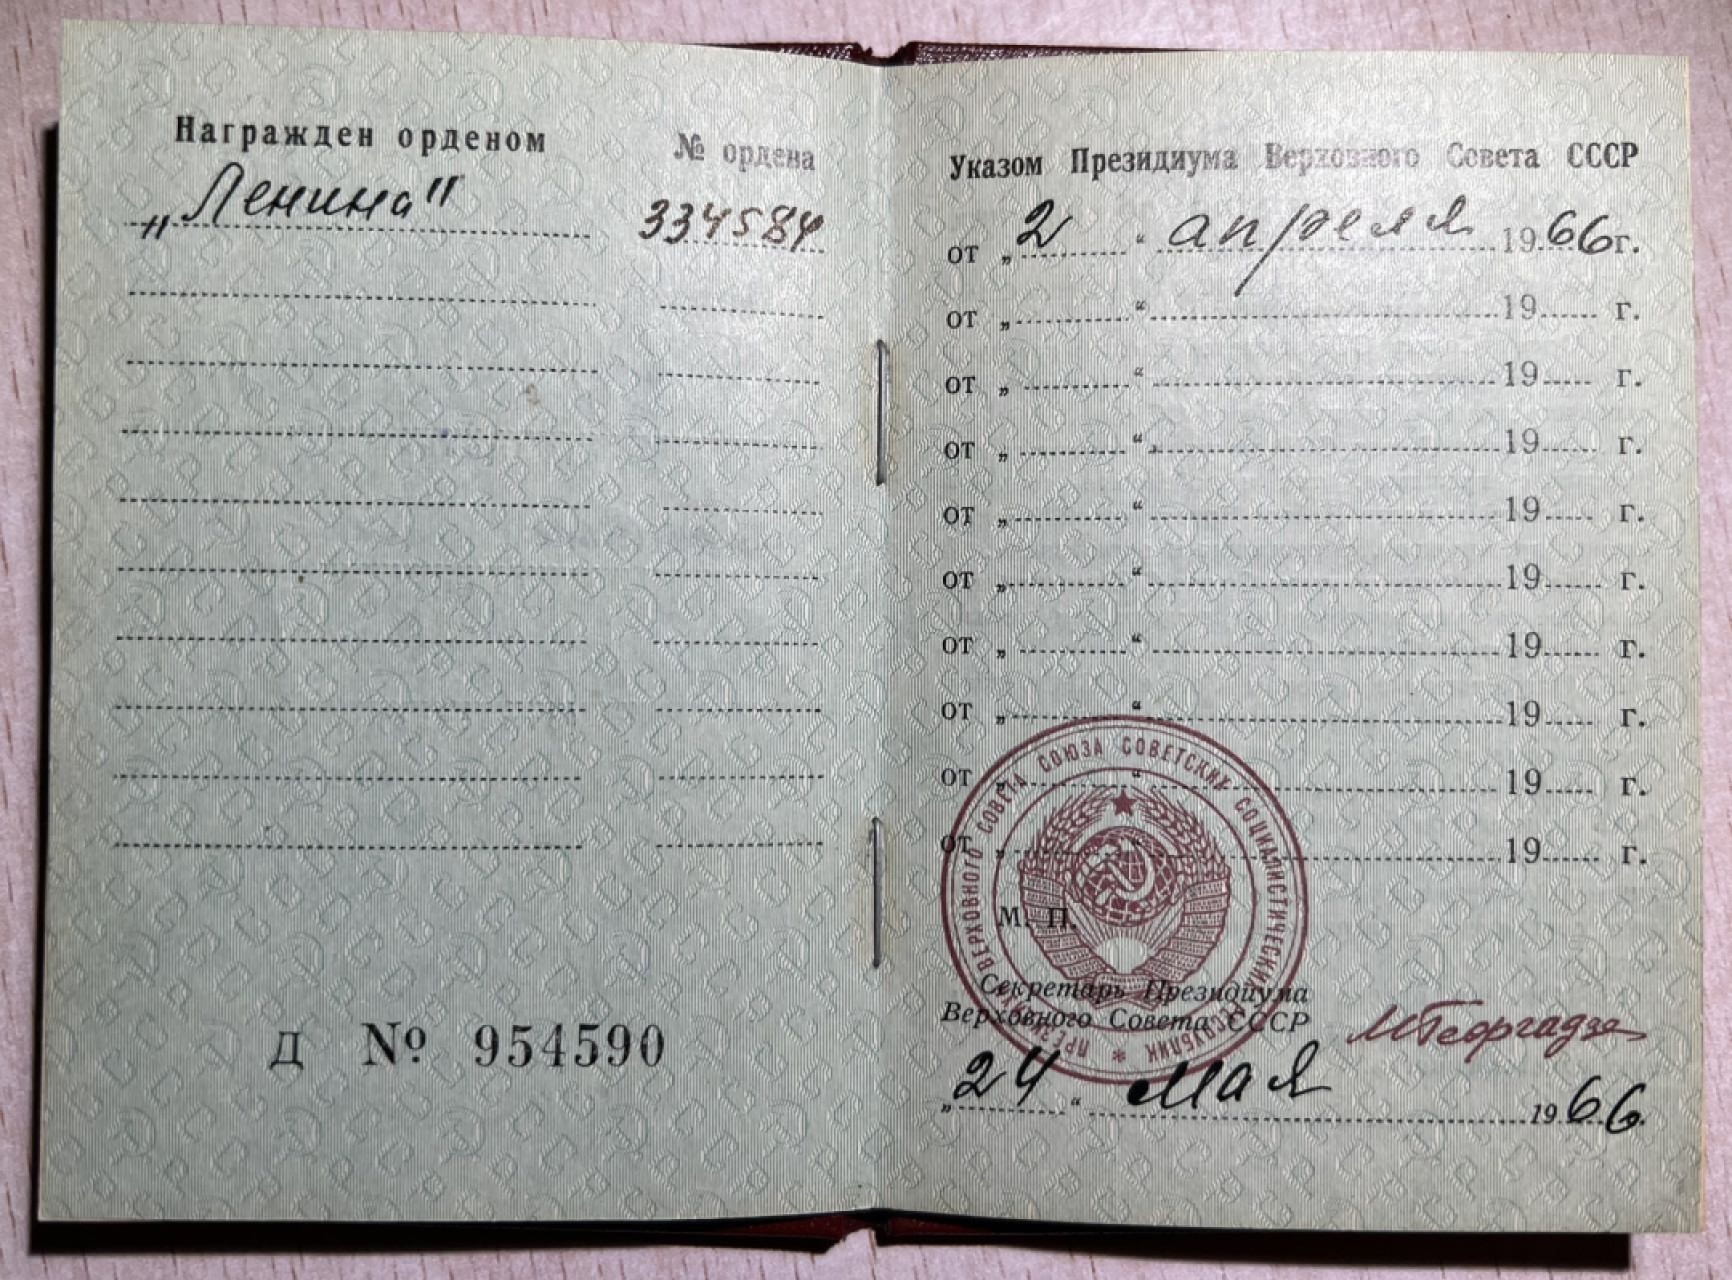 Награжден орденом № ордена
„Ленина" 334584
Д № 954590
Указом Президиума Верховного Совета СССР
от „2“ апреля 1966г.
от „ “ 19 г.
от „ “ 19 г.
от „ “ 19 г.
от „ “ 19 г.
от „ “ 19 г.
от „ “ 19 г.
от „ “ 19 г.
от „ “ 19 г.
от „ “ 19 г.
М. П.
ПРЕЗИДИУМ ВЕРХОВНОГО СОВЕТА СОЮЗА СОВЕТСКИХ СОЦИАЛИСТИЧЕСКИХ РЕСПУБЛИК *
Секретарь Президиума
Верховного Совета СССР МГеоргадзе
„24“ мая 1966.